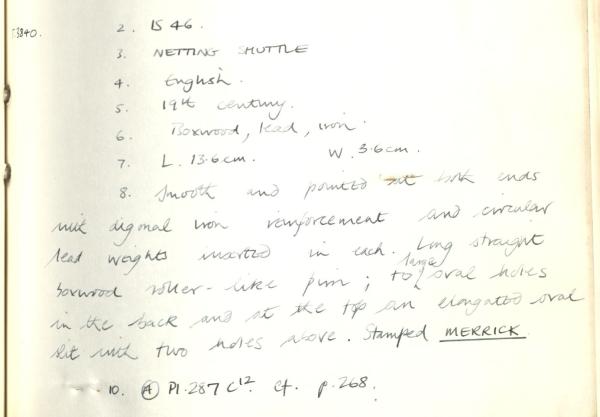 T.3840.
2. IS 46.
3. NETTING SHUTTLE
4. English.
5. 19th century.
6. Boxwood, lead, iron.
7. L. 13.6cm. W. 3.6cm.
8. Smooth and pointed at both ends
with digonal iron reinforcement and circular
lead weights inserted in each. Long straight
boxwood roller-like pirn; to large oval holes
in the back and at the top an elongated oval
slit with two holes above. Stamped MERRICK.
10. (A) Pl.287 C12. cf. p.268.